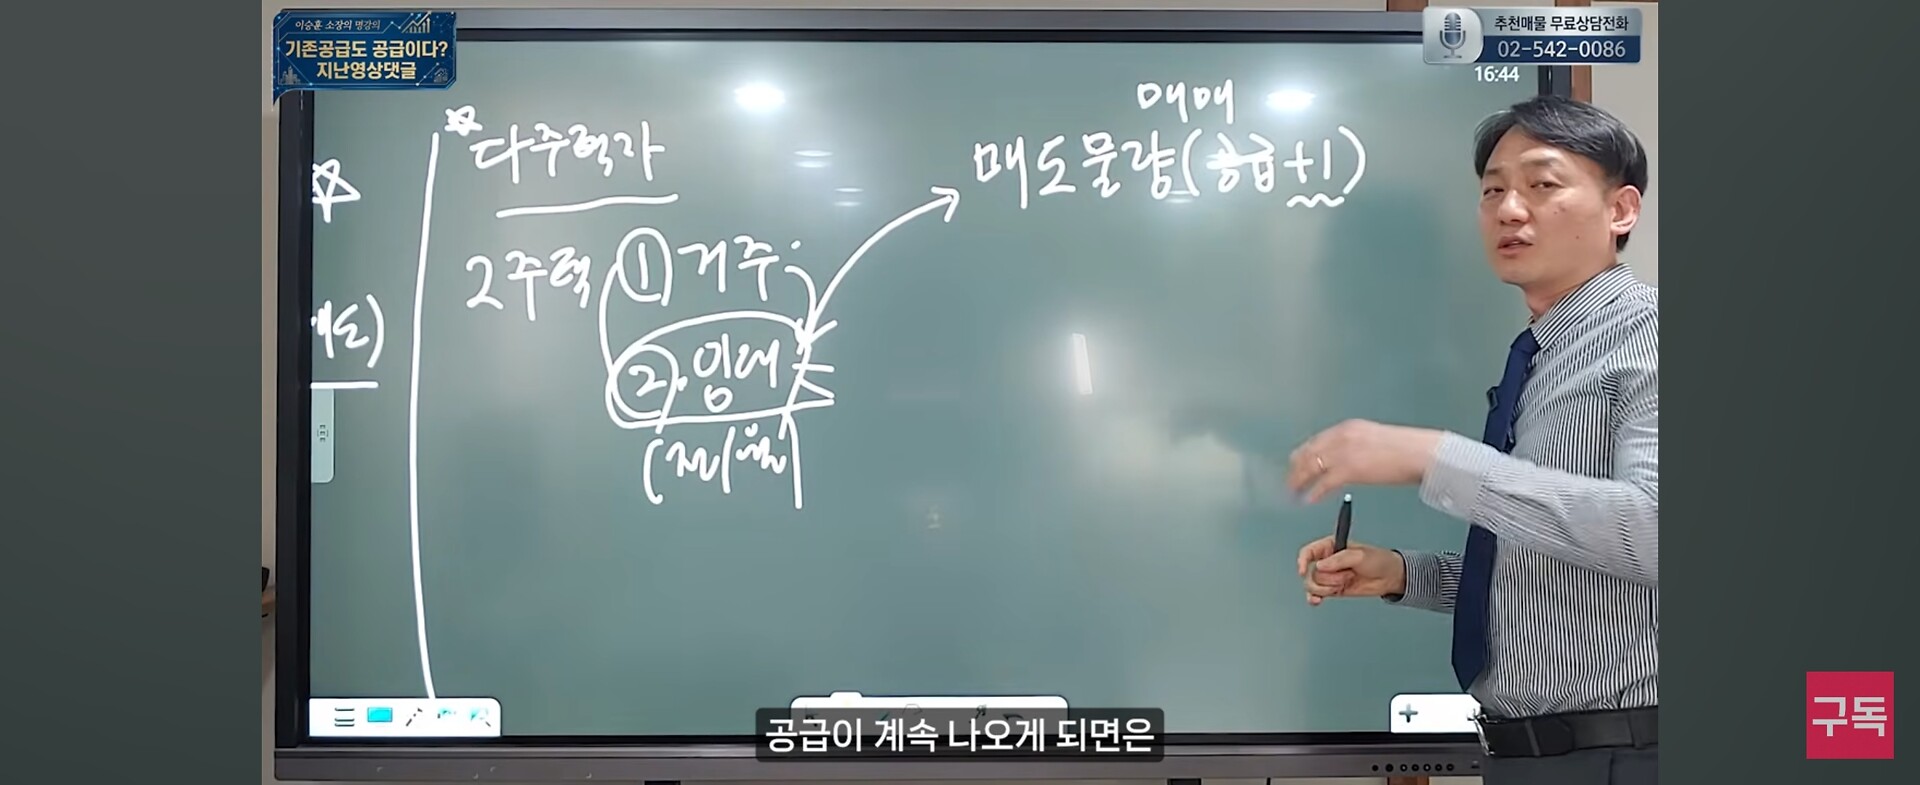 이승훈 소장의 명강의
기존공급도 공급이다?
지난영상댓글
추천매물 무료상담전화
02-542-0086
16:44
다주택자
2주택 ① 거주
②. 임대
(전/월)
매매
매도물량(공급+1)
도)
공급이 계속 나오게 되면은
구독